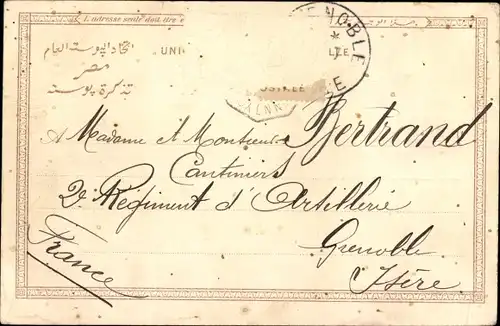 L'adresse seule doit être
اتحاد البوستة العام
UNI
مصر
تذكرة بوسته
NOBLE
A Madame et Monsieur Bertrand
Cantiniers
2e Régiment d'Artillerie
Grenoble
Isère
France